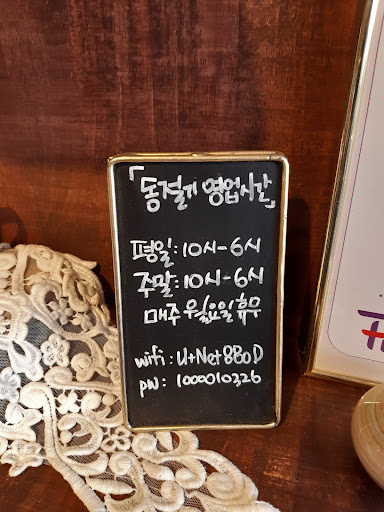 「동절기 영업시간」
평일:10시-6시
주말:10시-6시
매주 월요일 휴무
wifi: U+Net880D
pw: 1000010326